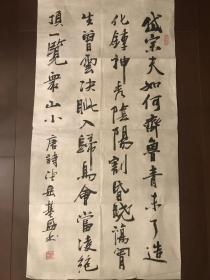 岱宗夫如何齊魯青未了造
化鍾神秀陰陽割昏曉蕩胷
生曾雲决眦入歸鳥會當凌絕
頂一覽衆山小 唐詩望岳